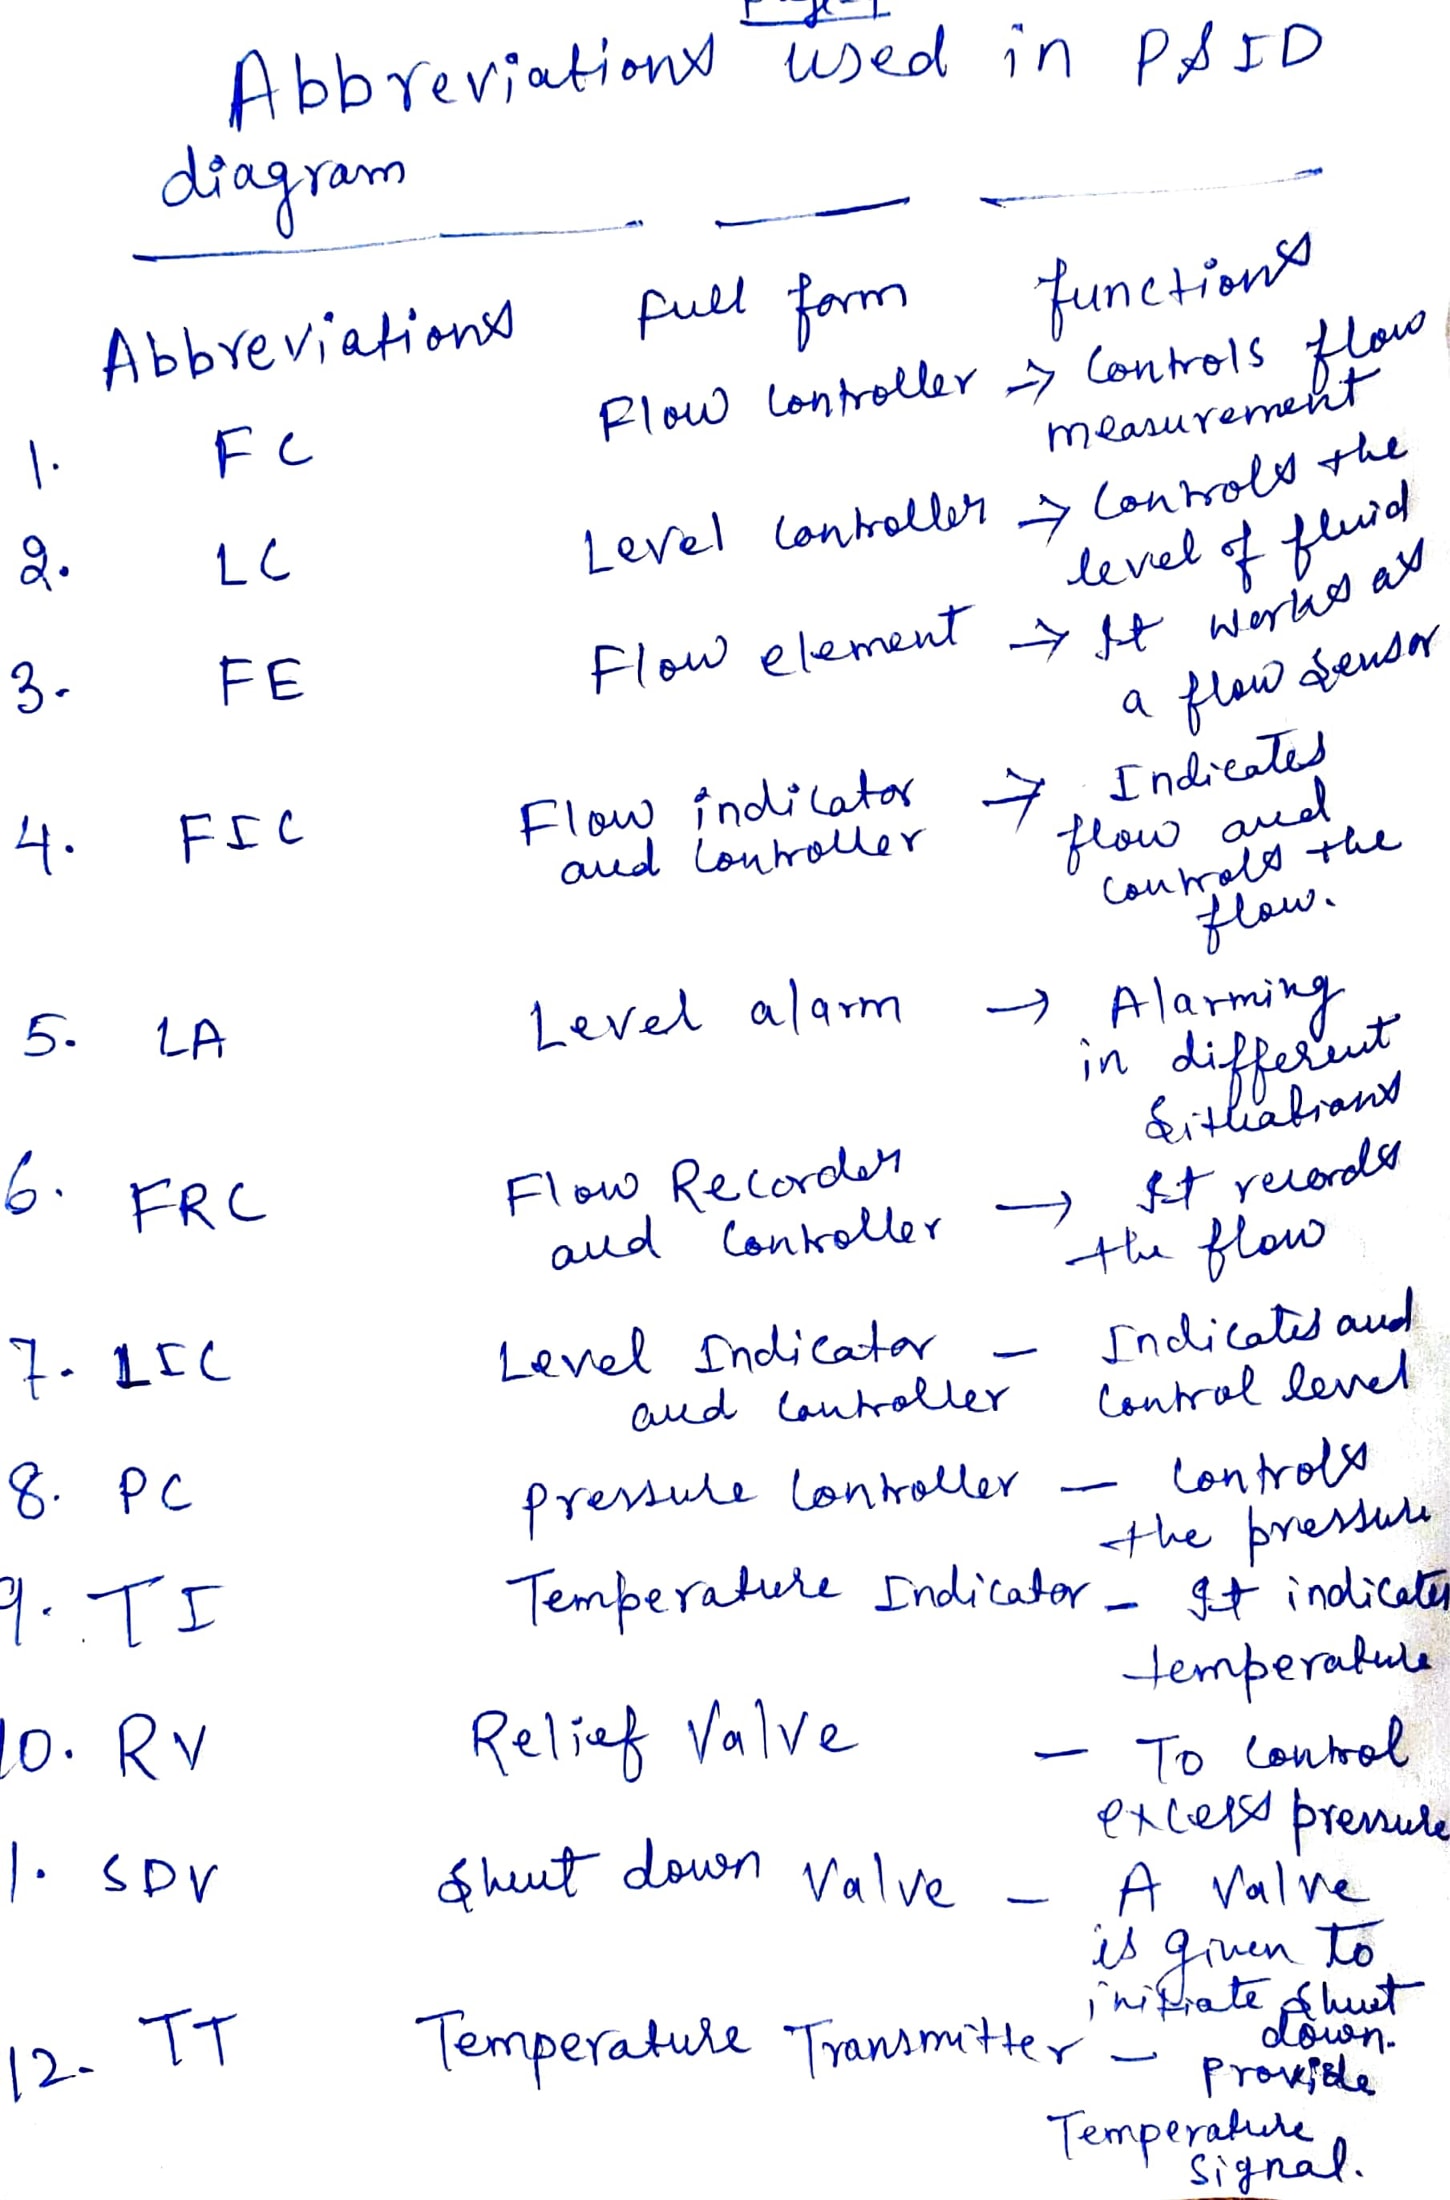 Abbreviations used in P&ID
diagram
Abbreviations Full form functions
1. FC Flow Controller → Controls flow
measurement
2. LC Level Controller → Controls the
level of fluid
3. FE Flow element → It works as
a flow sensor
4. FIC Flow indicator → Indicates
and Controller flow and
controls the
flow.
5. LA Level alarm → Alarming
in different
situations
6. FRC Flow Recorder → It records
and Controller the flow
7. LIC Level Indicator – Indicates and
and Controller Control level
8. PC Pressure Controller – Controls
the pressure
9. TI Temperature Indicator – It indicates
temperature
10. RV Relief Valve – To Control
excess pressure
1. SDV Shut down Valve – A Valve
is given to
initiate shut
down.
12. TT Temperature Transmitter – Provide
Temperature
signal.